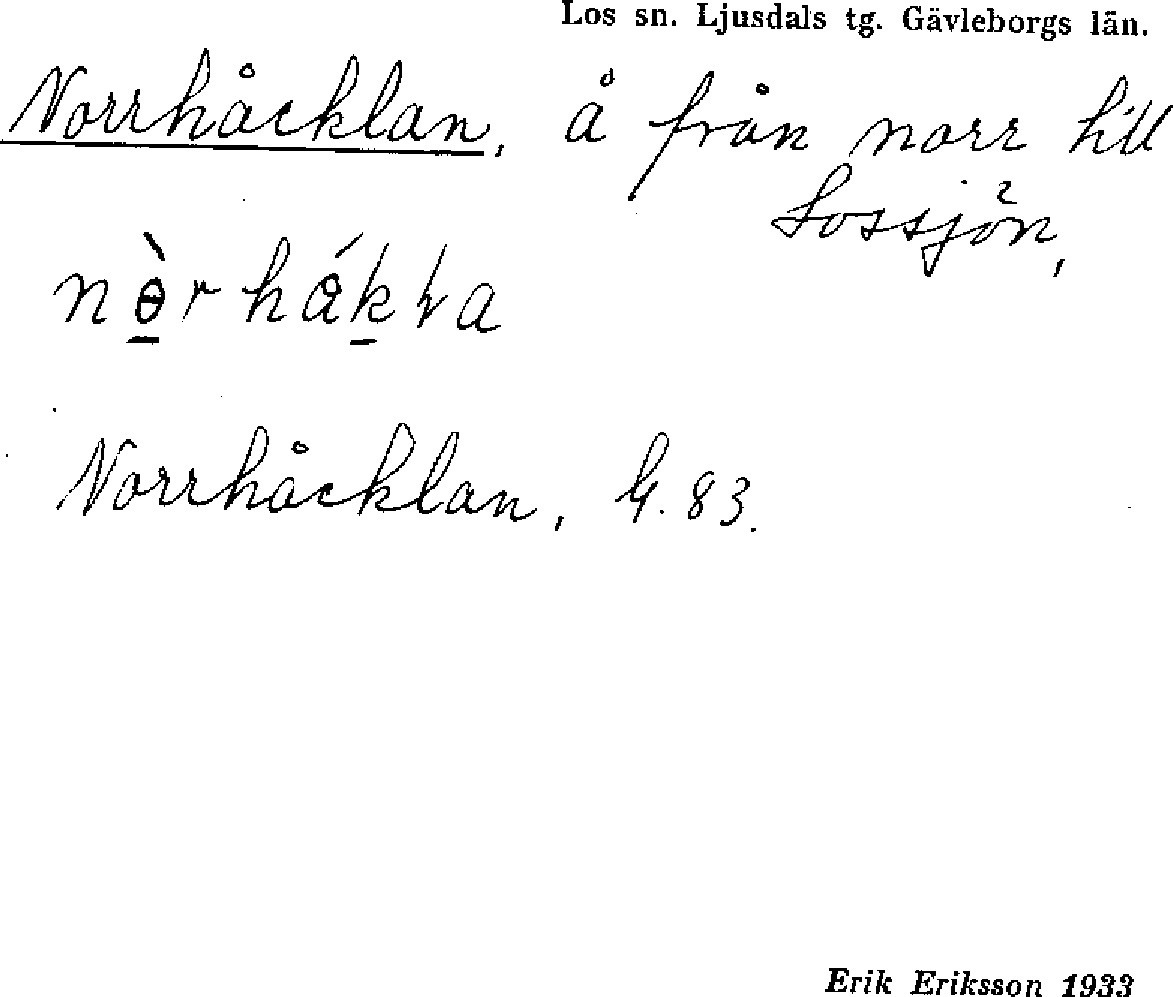 Los sn. Ljusdals tg. Gävleborgs län.
Norrhåcklan, å från norr till
Lossjön,
Norrhåcklan, G. 83.
Erik Eriksson 1933